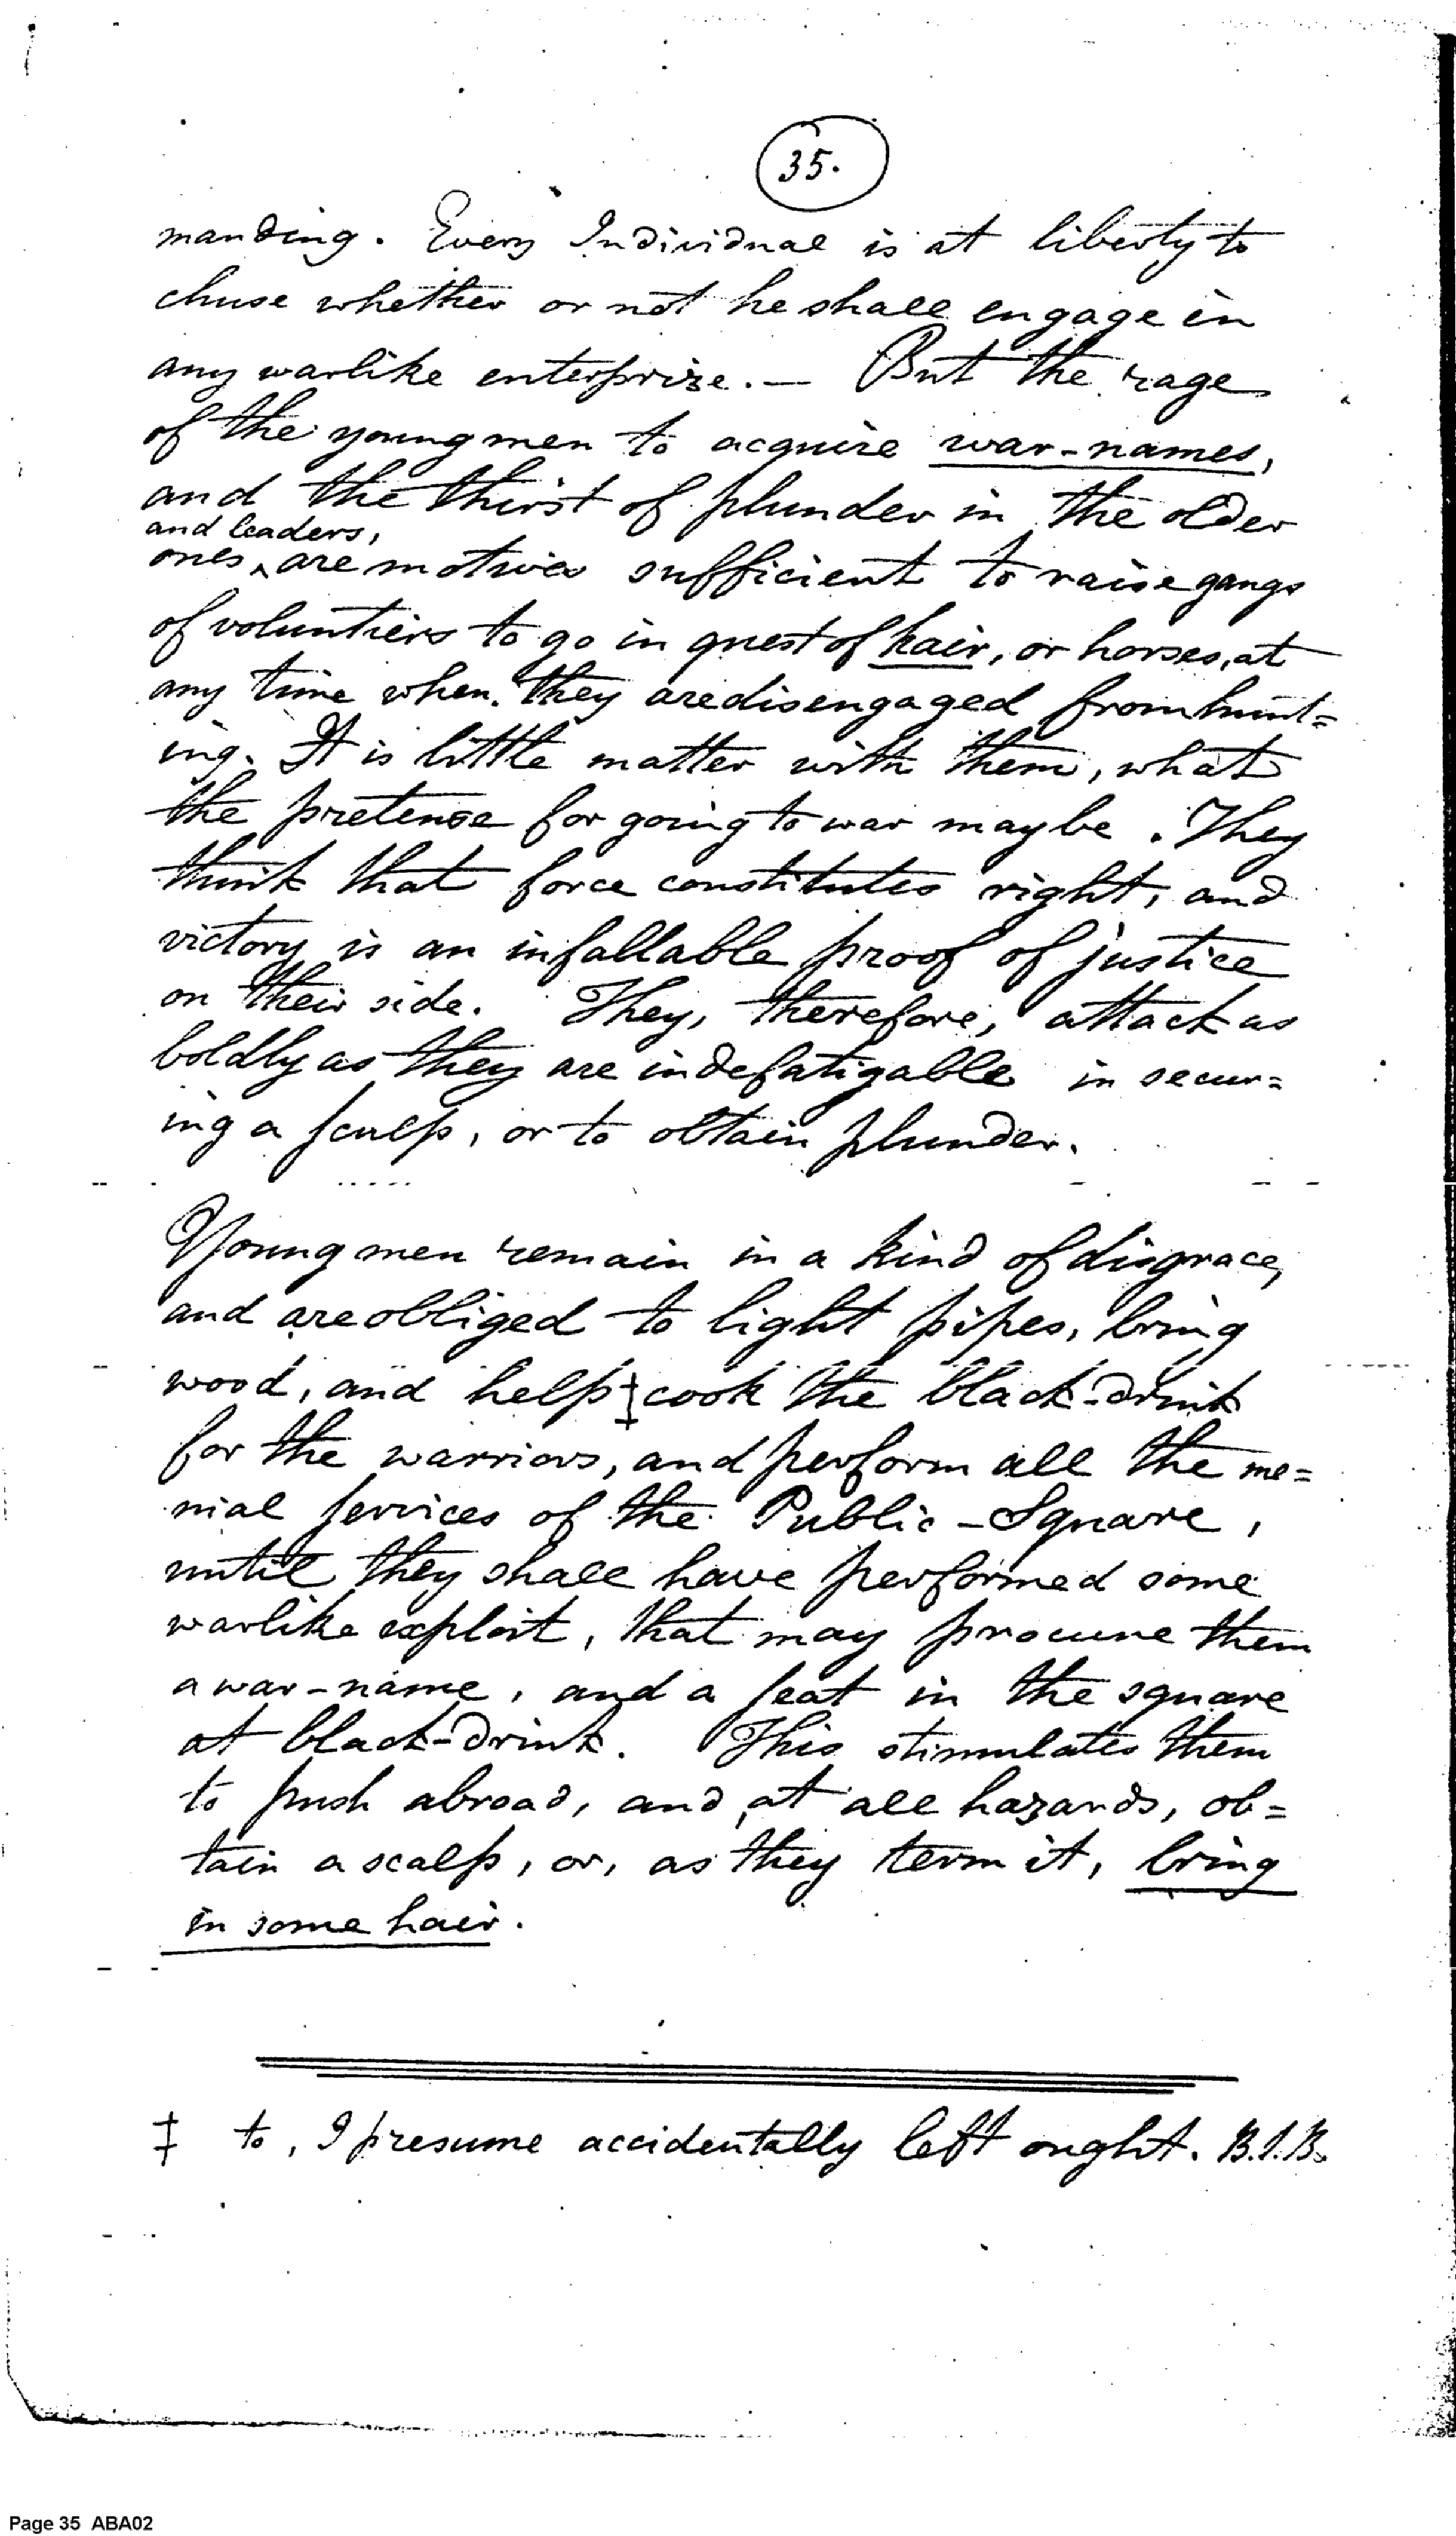 35.
manding. Every Individual is at liberty to
chuse whether or not he shall engage in
any warlike enterprize. — But the rage
of the young men to acquire war-names,
and the thirst of plunder in the older
and leaders,
ones ‸ are motives sufficient to raise gangs
of voluntiers to go in quest of hair, or horses, at
any time when they are disengaged from hunt=
ing. It is little matter with them, what
the pretense for going to war may be. They
think that force constitutes right, and
victory is an infallable proof of justice
on their side. They, therefore, attack as
boldly as they are indefatigable in secur=
ing a sculp, or to obtain plunder.
Young men remain in a kind of disgrace,
and are obliged to light pipes, bring
wood, and help ‡ cook the black-drink
for the warriors, and perform all the me=
nial services of the Public-Square,
until they shall have performed some
warlike exploit, that may procure them
a war-name, and a seat in the square
at black-drink. This stimulates them
to push abroad, and at all hazards, ob=
tain a scalp, or, as they term it, bring
in some hair.
‡ to, I presume accidentally left ought. B.I.B.
Page 35 ABA02